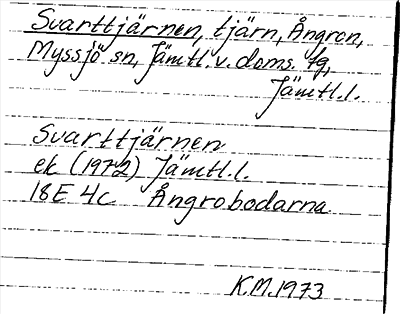 Svarttjärnen, tjärn, Ångron,
Myssjö sn, Jämtl.v.doms. tg,
Jämtl.l.
Svarttjärnen
ek (1972) Jämtl.l.
18E 4c Ångrobodarna
K.M.1973